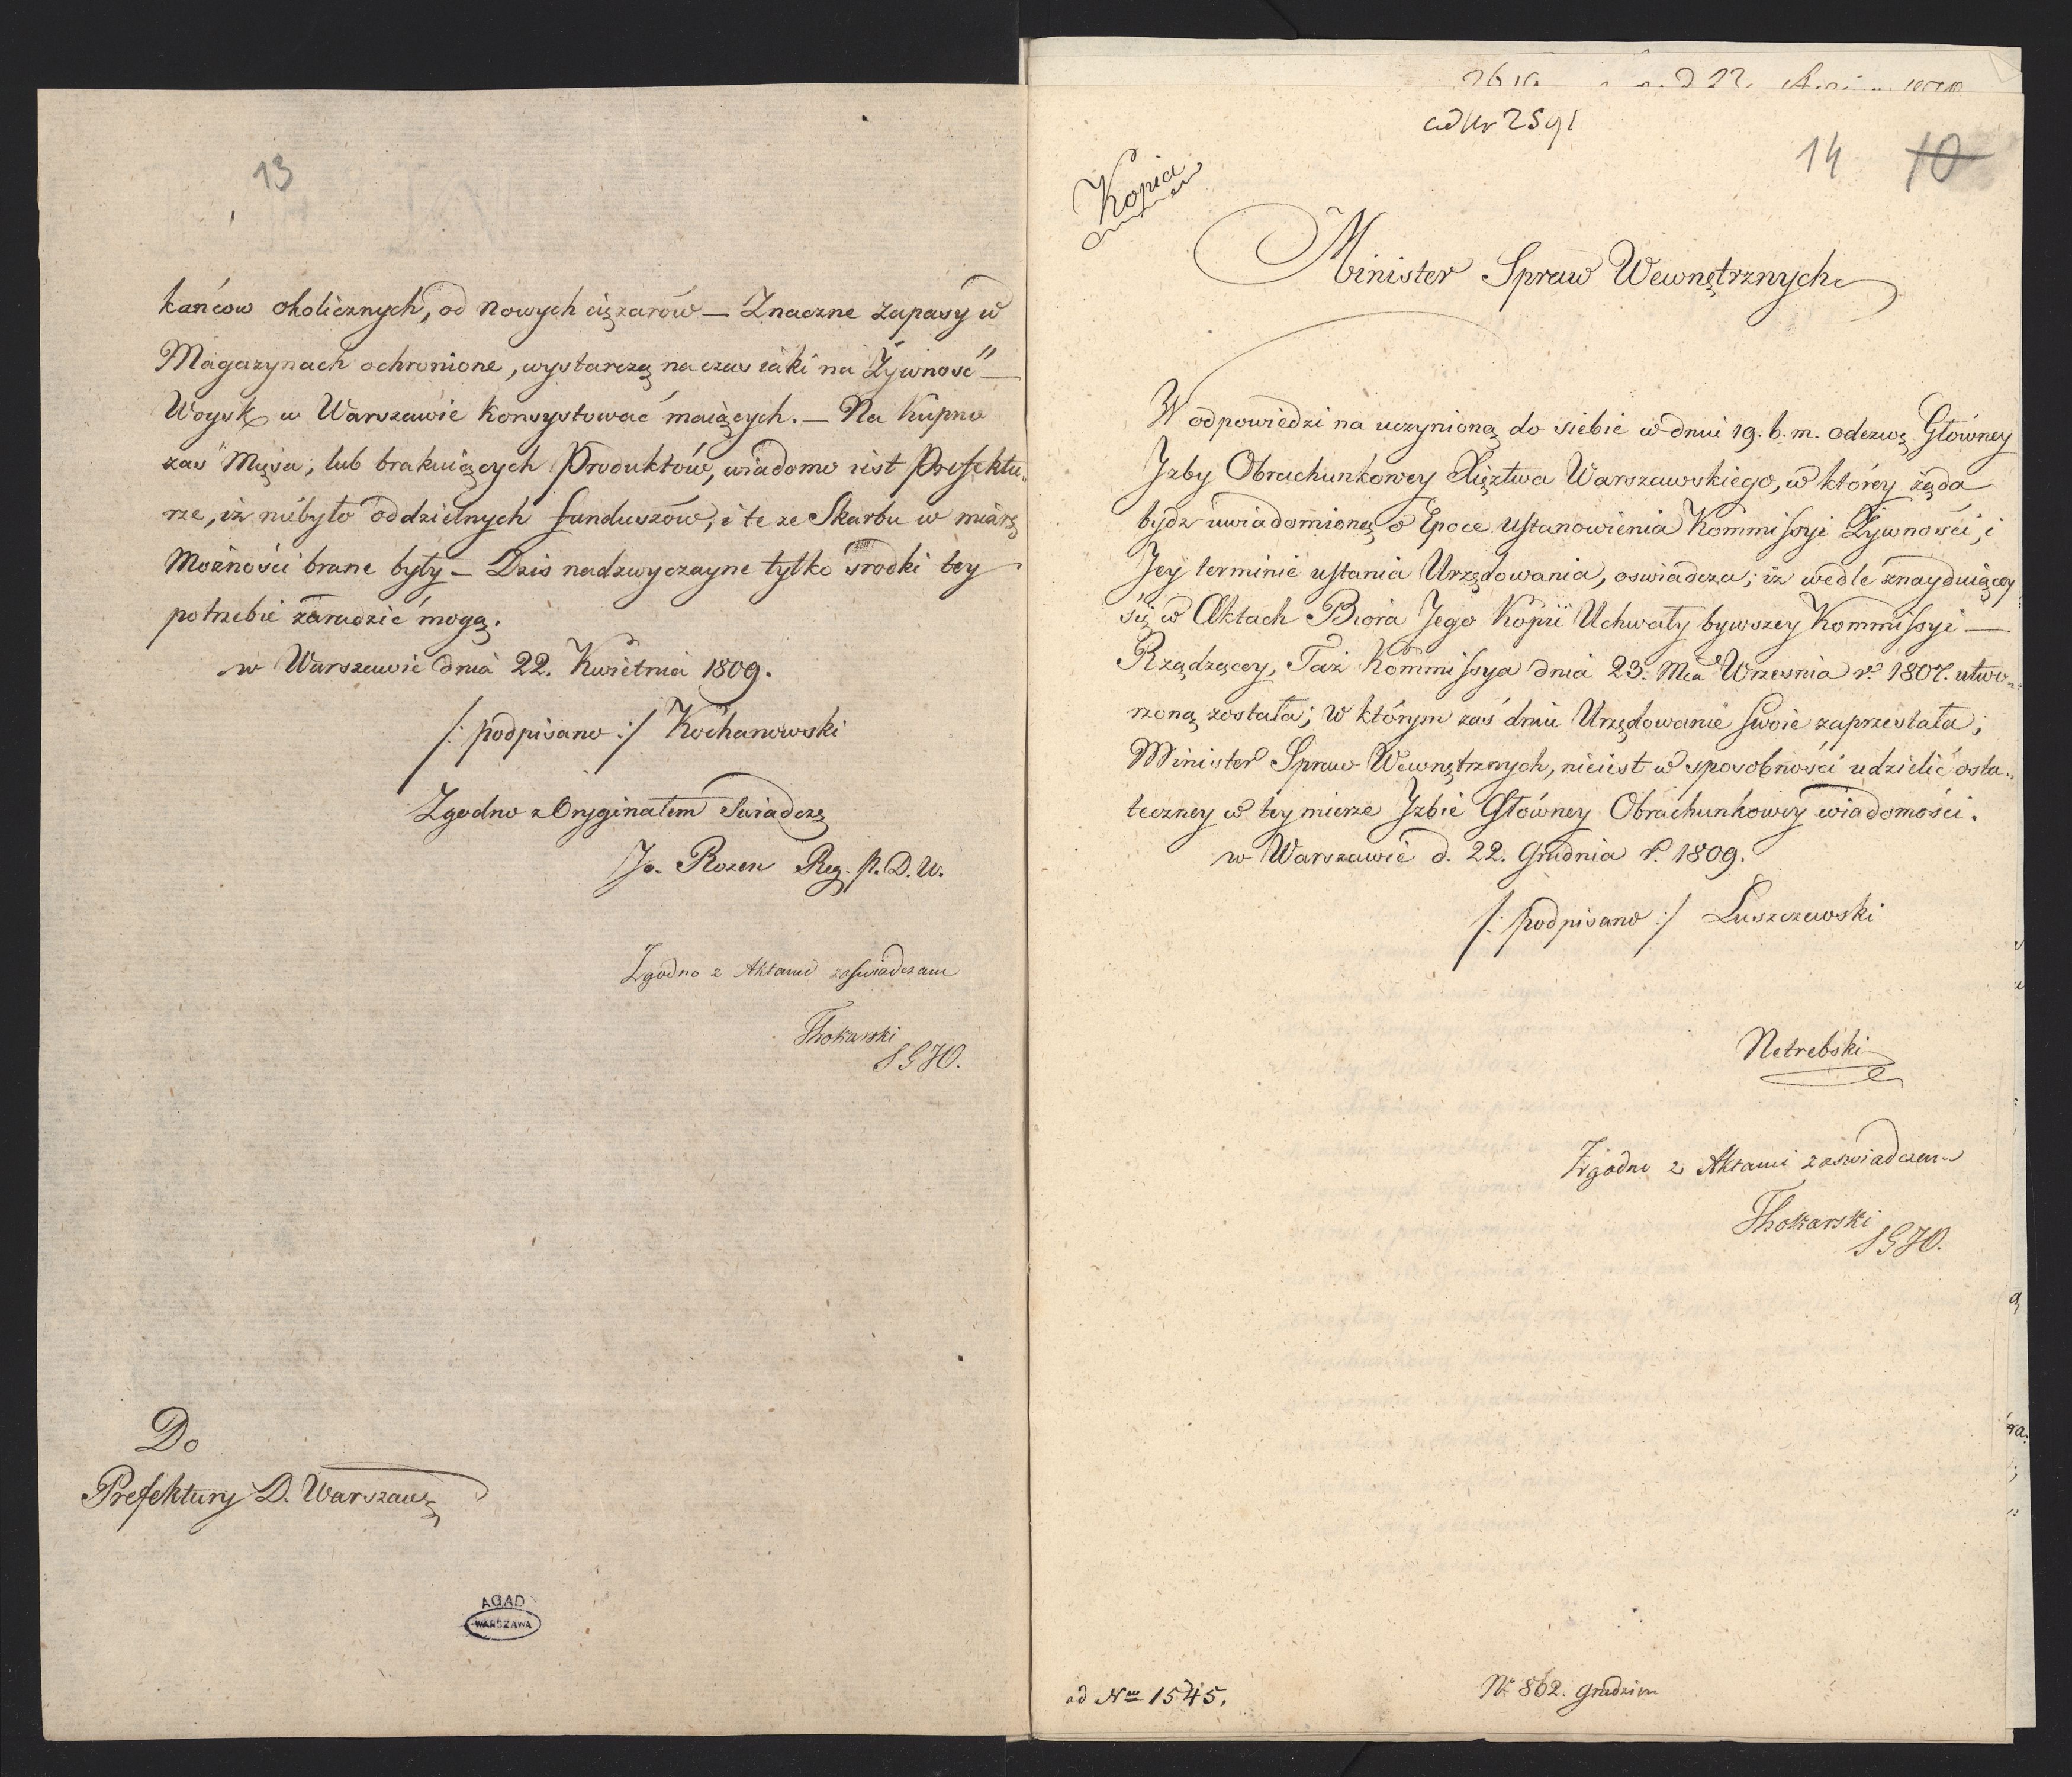 13
kańcow okolicznych, od nowych ciężarów — Znaczne zapasy w
Magazynach ochronione, wystarczą na czas iaki na Żywność —
Woysk w Warszawie konsystować maiących. — Na kupno
zaś Mięsa, lub brakuiących Produktów, wiadomo iest Prefektu„
rze, iż niebyło oddzielnych funduszów, i te ze Skarbu w miarę
Możności brane były — Dziś nadzwyczayne tylko środki tey
potrzebie zaradzić mogą.
w Warszawie dnia 22. Kwietnia 1809.
/: podpisano :/ Kochanowski
Zgodno z Oryginałem Swiadczę
Jo. Rozen Reg. P. D. W.
Zgodno z Aktami zaświadczam
Thokarski
SGJO.
Do
Prefektury D. Warszaws
AGAD
WARSZAWA
ad Nr 2591
14 10
Kopia
Minister Spraw Wewnętrznych
W odpowiedzi na uczynioną do siebie w dniu 19. b. m. odezwę Głowney
Jzby Obrachunkowey Xięztwa Warszawskiego, w którey żąda
bydź uwiadomioną o Epoce ustanowienia Kommissyi Żywności, i
Jey terminie ustania Urzędowania, oswiadcza, iż wedle znayduiącey
się w Aktach Biora Jego Kopii Uchwały bywszey Kommissyi —
Rządzącey, Taż Kommissya dnia 23. Mca Wrzesnia r. 1807. utwo„
rzoną została; w którym zaś dniu Urzędowanie swoie zaprzestała;
Minister Spraw Wewnętrznych, nieiest w sposobności udzielić osta„
teczney w tey mierze Jzbie Głowney Obrachunkowey wiadomości.
w Warszawie d. 22. Grudnia r. 1809.
/: podpisano :/ Łuszczewski
Netrebski
Zgodno z Aktami zaświadczam
Thokarski
SGJO.
ad Nrm 1545.
Nr 862. grudzien